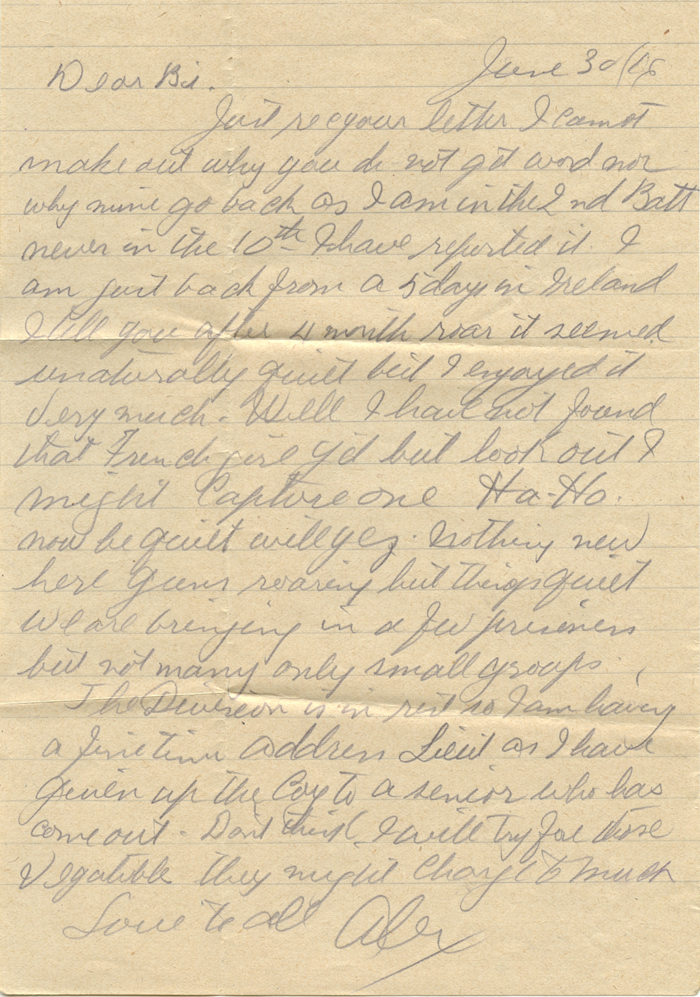 June 30/18
Dear Bil.
Just rec your letter I cannot
make out why you do not get word nor
why mine go back as I am in the 2nd Batt
never in the 10th I have reported it. I
am just back from a 5 days in Ireland
I tell you after 4 month roar it seemed
unaturally quiet but I enjoyed it
very much. Well I have not found
that French girl yd but look out I
might Capture one Ha-Ho.
now be quiet will yez. Nothing new
here Guns roaring but things quiet
We are bringing in a few prisoners
but not many only small groups.
The Division is in rest so I am having
a fine time Address Lieut as I have
given up the Coy to a senior who has
come out - Dont think I will try for those
Vegatible they might Charge to much
Love to all Alex